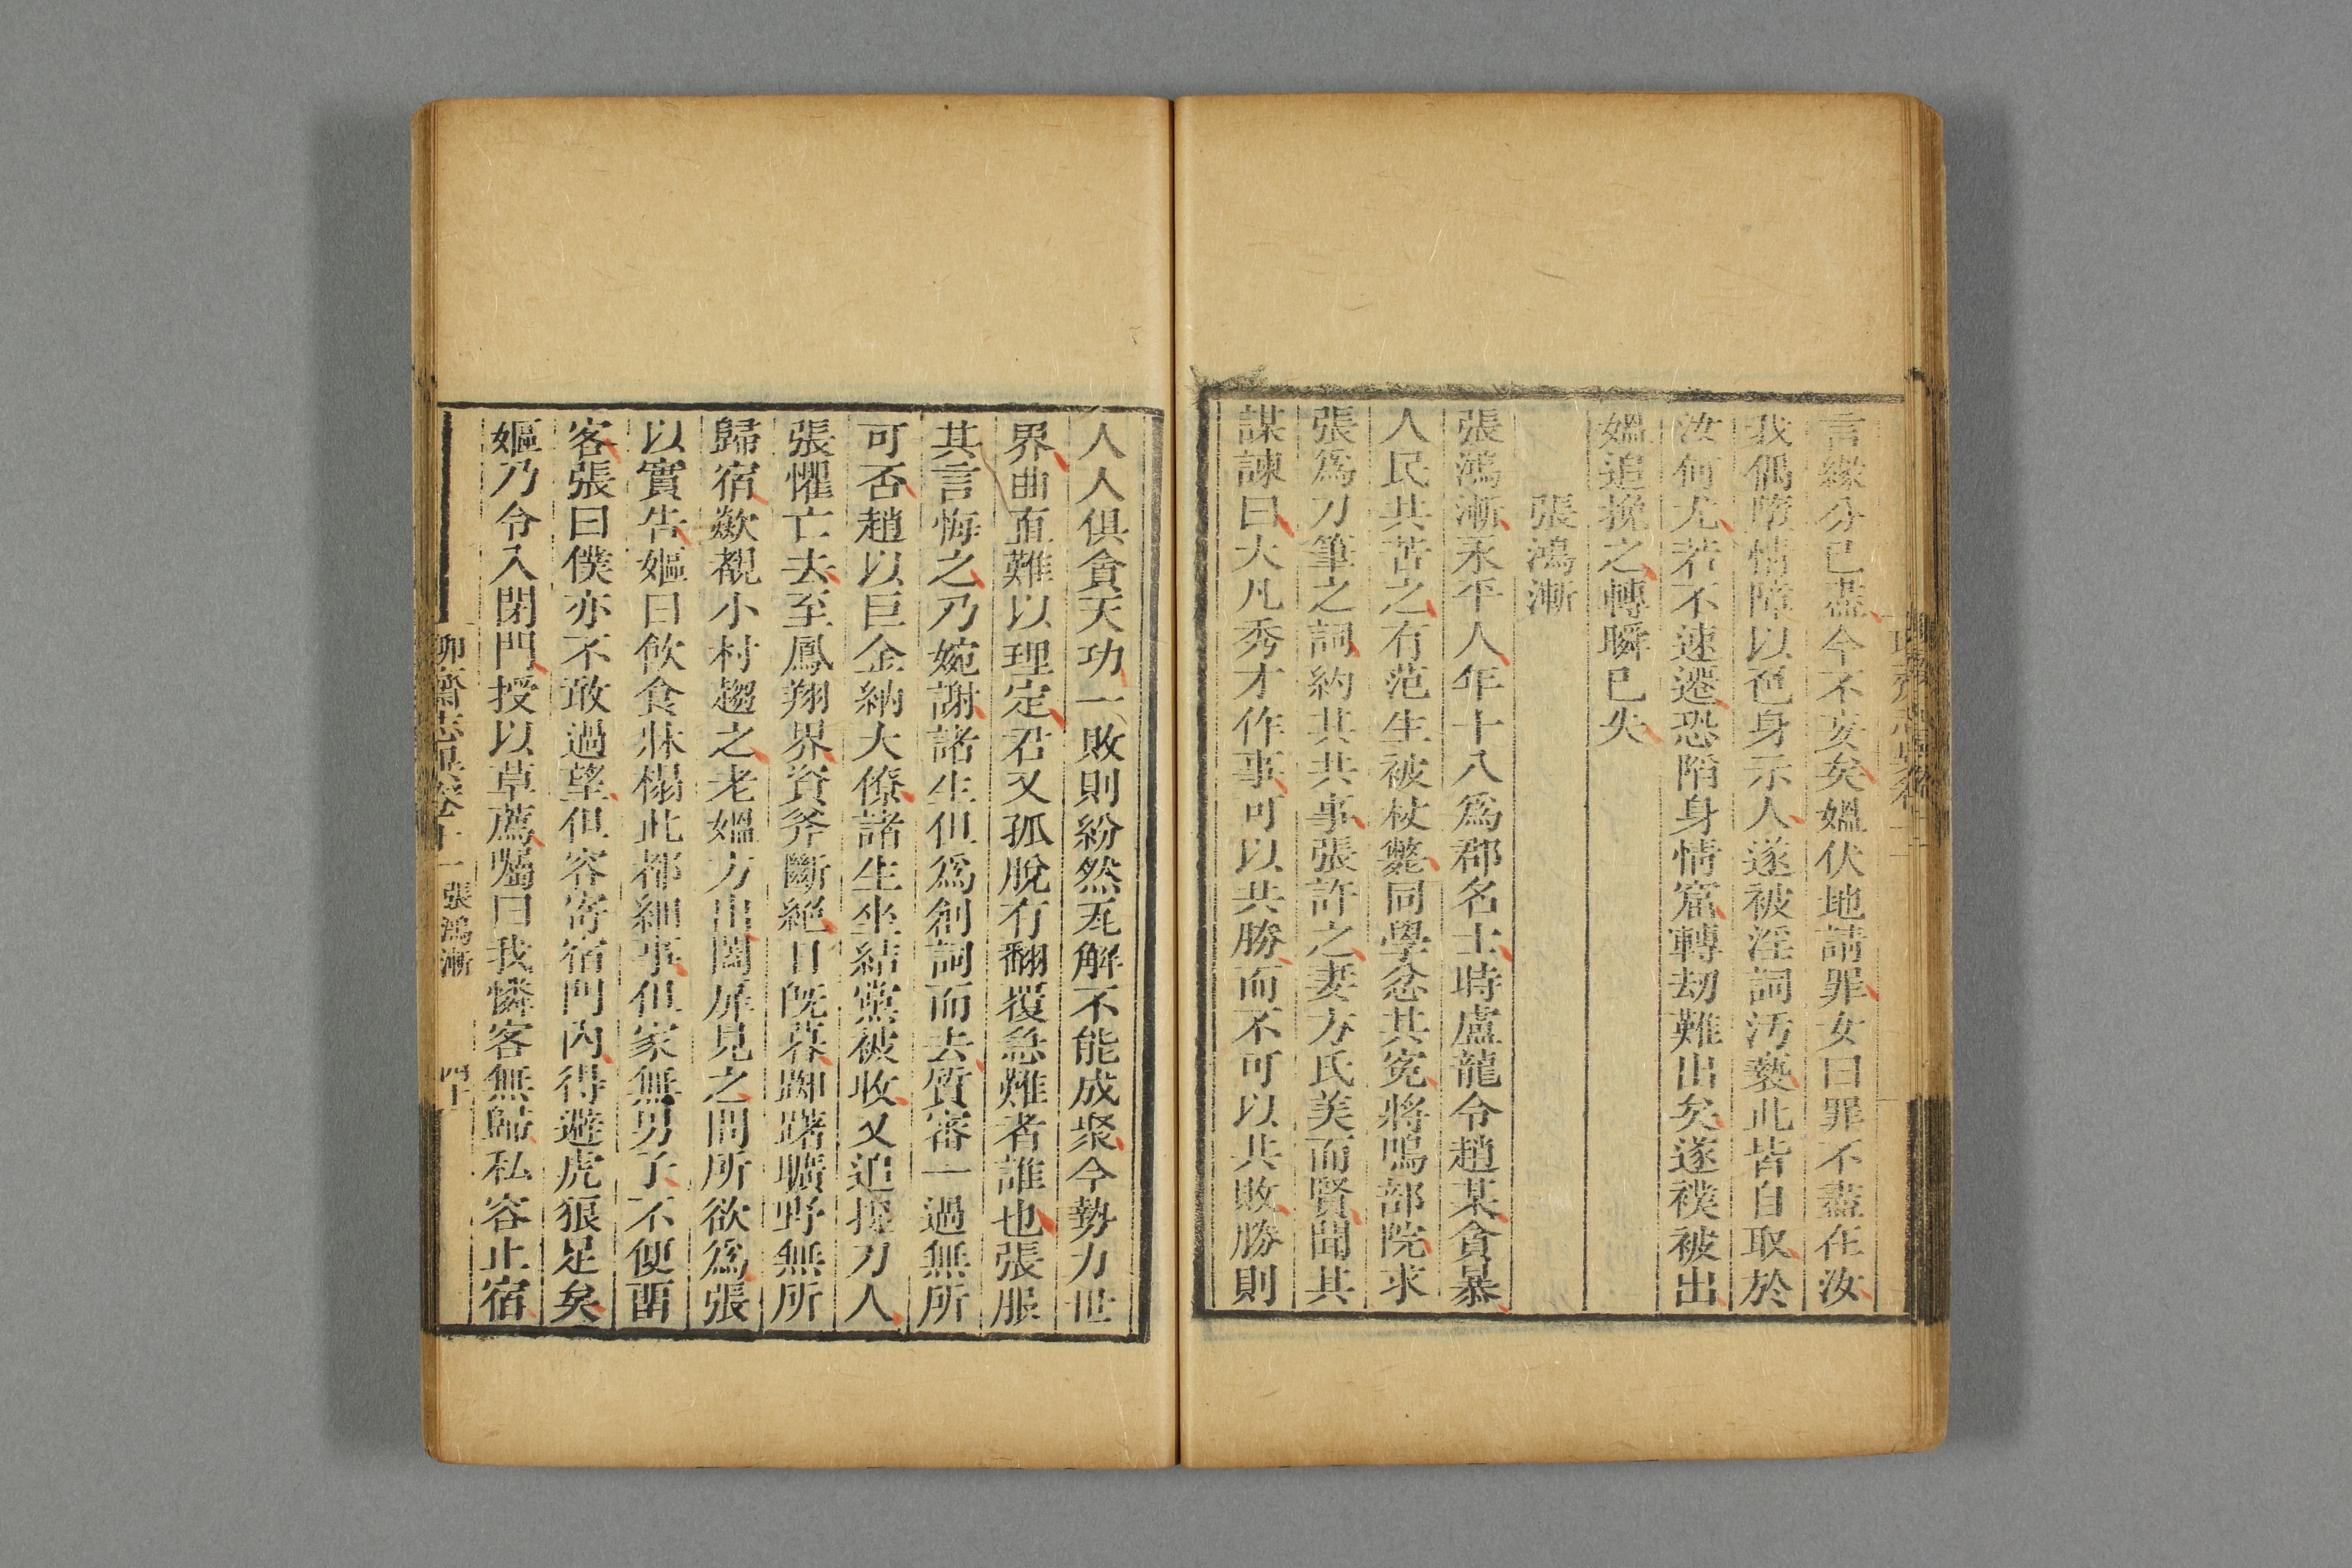 言緣分已盡今不妄矣媼伏地請罪女曰罪不盡在汝
我偶墮情障以色身示人遂被淫詞汚褻此皆自取於
汝何尤若不速遷恐陷身情窟轉劫難出矣遂襆被出
媼追挽之轉瞬已失
張鴻漸
張鴻漸永平人年十八爲郡名士時盧龍令趙某貪暴
人民共苦之有范生被杖斃同學忿其寃將鳴部院求
張爲刀筆之詞約其共事張許之妻方氏美而賢聞其
謀諫曰大凡秀才作事可以共勝而不可以共敗勝則
人人俱貪天功一敗則紛然瓦解不能成聚今勢力世
界曲直難以理定君又孤脫有翻覆急難者誰也張服
其言悔之乃婉謝諸生但爲創詞而去質審一過無所
可否趙以巨金納大僚諸生坐結黨被收又追捉刀人
張懼亡去至鳳翔界資斧斷絕日旣暮踟躇曠野無所
歸宿歘覩小村趨之老媼方出闔扉見之問所欲爲張
以實告嫗曰飲食牀榻此都細事但家無男子不便畱
客張曰僕亦不敢過望但容寄宿門內得避虎狼足矣
嫗乃令入閉門授以草薦囑曰我憐客無歸私容止宿
聊齋志異卷十一 張鴻漸 四十